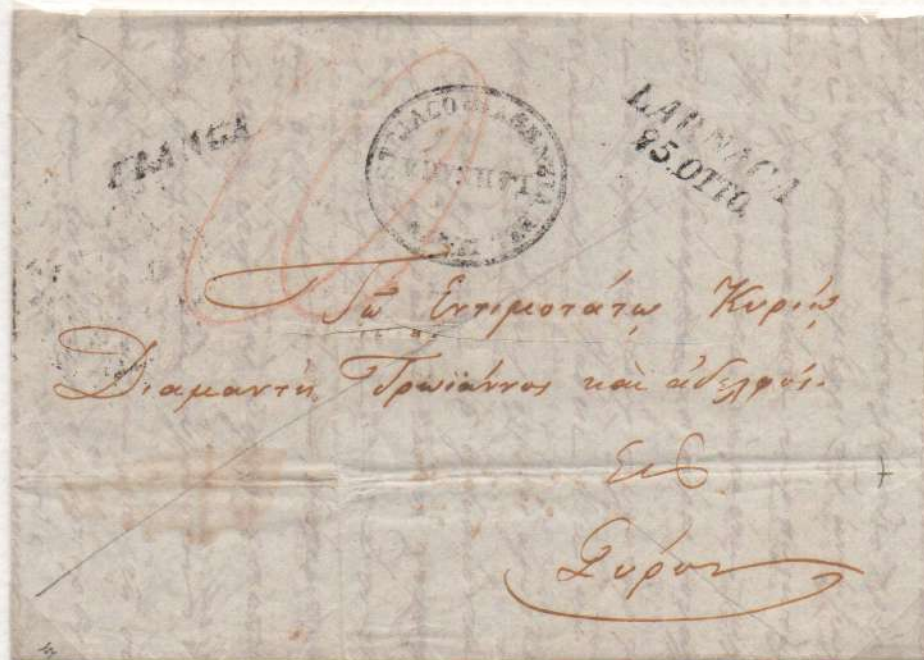 FRANCA
LARNACA
25.OTTO.
Τῶ Εντιμοτάτῳ Κυρίῳ
Διαμαντῆ Πρωϊάννος καὶ ἀδελφοὶ.
Εις
Σύρον